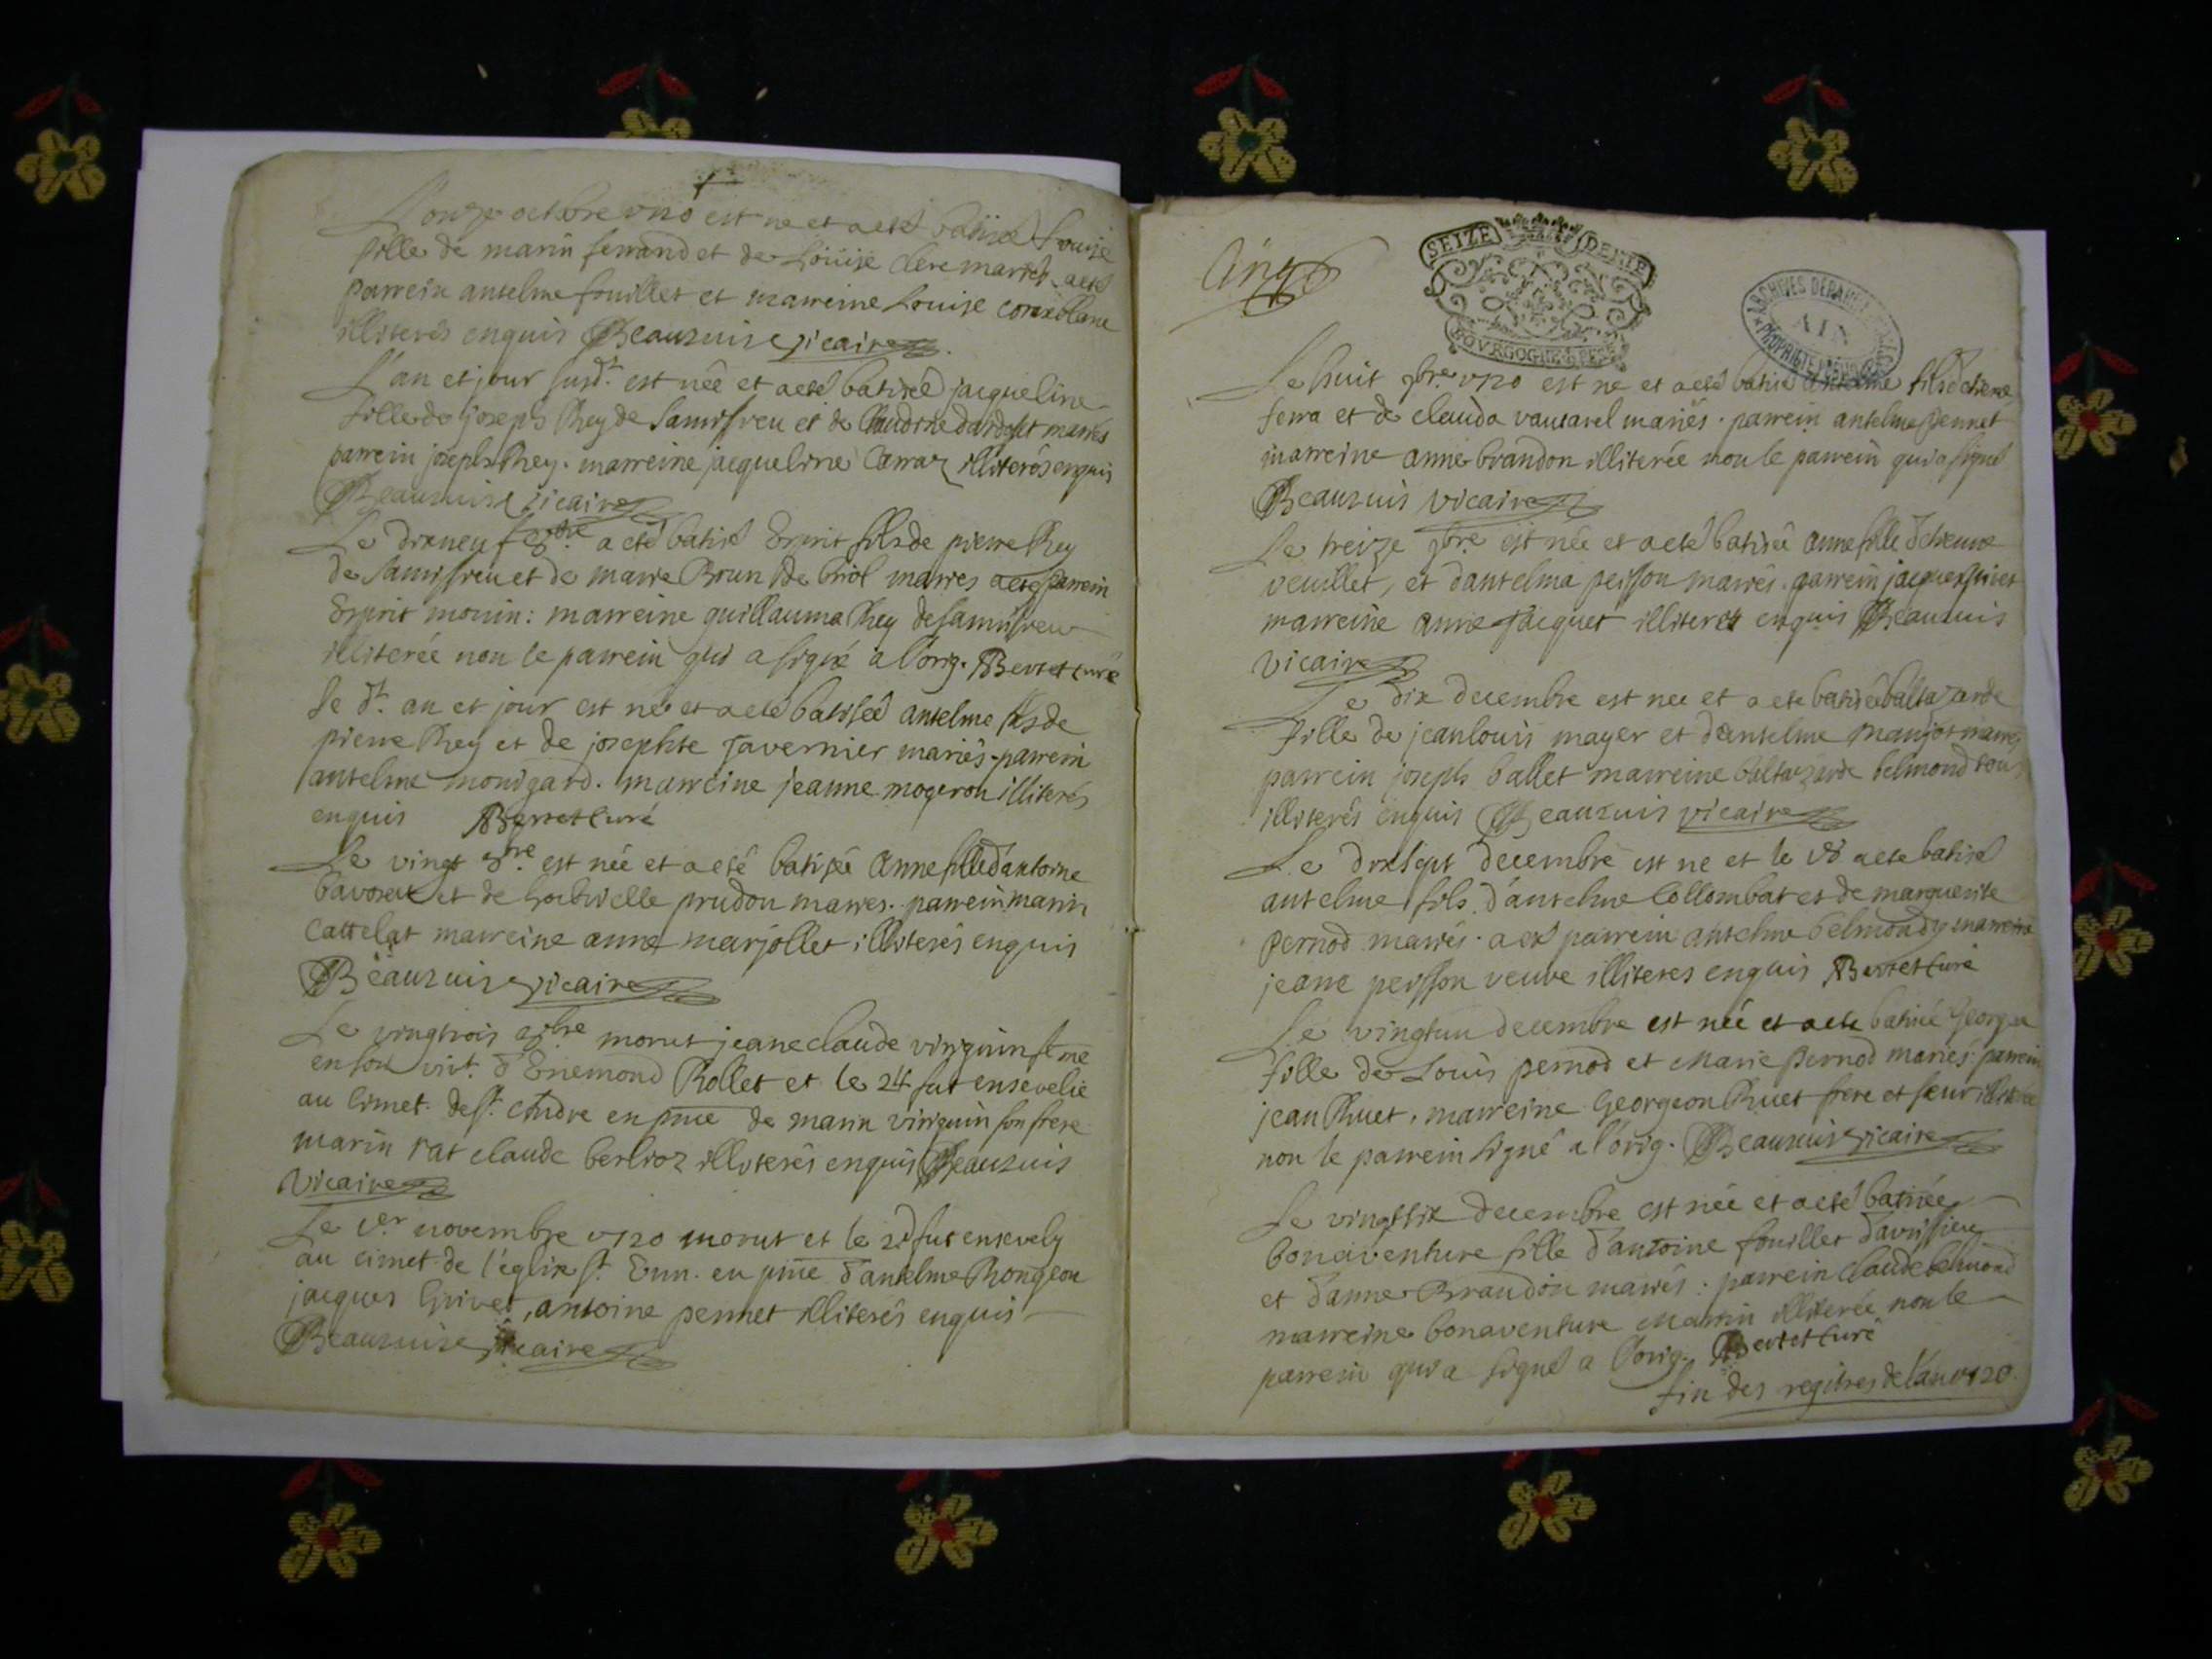 L'onze octobre 1720 est ne et a eté batisé Louise
fille de marin ferrand et de Loüise clere mariés. a eté
parrein anselme fouillet et marreine Louise
illiterés enquis Beauzuis vicaire
L'an et jour susd.t est née et a eté batisée jacqueline
fille de joseph Rey de et de Claudine mariés
parrein joseph Rey. marreine jacqueline Carraz illiterés enquis
Beauzuis vicaire
Le dixneuf 8bre a eté batisé Esprit fils de pierre Rey
de et de marie Brun de mariés a eté parrein
Esprit monin: marreine guillauma Rey de
illiterée non le parrein qui a signé a l'orig. Bertet curé
Le d.t an et jour est né et a eté batiseé antelme fils de
pierre Rey et de josephte Tavernier mariés. parrein
antelme monigard. marreine jeanne mogeron illiterés
enquis Bertet curé
Le vingt 8bre est née et a eté batisée Anne fille d'antoine
et de prudon mariés. parrein marin
Cattelat marreine anne marjollet illiterés enquis
Beauzuis vicaire
Le vingtrois 8bre morut jeane claude vinguin feme
en son viv.t d'Enemond Rollet et le 24 fut ensevelie
au cimet. de s.t Andre en pnce de marin vinguin son frere
marin rat claude berlioz illiterés enquis Beauzuis
vicaire
Le 1er novembre 1720 morut et le 2d fut ensevely
au cimet de l'églix s.t Enn. en pnce d'antelme Rongeon
jacques Grivet, antoine pennet illiterés enquis
Beauzuis vicaire
SEIZE DENIE
BOVRGOGNE
ARCHIVES
AIN
PROPRIETE
Le huit 9bre 1720 est ne et a eté batisé antelme fils d'etiene
ferra et de clauda vautarel mariés. parrein antelme pennet
marreine anne brandon illiterée non le parrein qui a signé
Beauzuis vicaire
Le treize 9bre est née et a eté batisée anne fille d'etienne
veuillet, et d'antelma peisson mariés. parrein jacques
marreine anne Jacquet illiterés enquis Beauzuis
vicaire
Le dix decembre est nee et a ete batisée baltazarde
fille de jean louis mayer et d'antelme manjot mariés
parrein joseph ballet marreine baltazarde belmond tous
illiterés enquis Beauzuis vicaire
Le dixsept decembre est ne et le 18 a ete batisé
antelme fils d'antelme Collombat et de marguerite
pernod mariés. a eté parrein antelme belmond marreine
jeane peisson veuve illiteres enquis Bertet curé
Le vingtun decembre est née et a ete batisée George
fille de Louis pernod et Marie pernod mariés: parrein
jean Ruet, marreine Georgeon Ruet frere et seur illiterée
non le parrein signé a l'orig. Beauzuis vicaire
Le vingtsix decembre est née et a eté batisée
bonaventure fille d'antoine fouillet
et d'anne Brandon mariés: parrein claude belmond
marreine bonaventure Martin illiterée non le
parrein qui a signé a l'orig. Bertet curé
fin des regitres de l'an 1720.